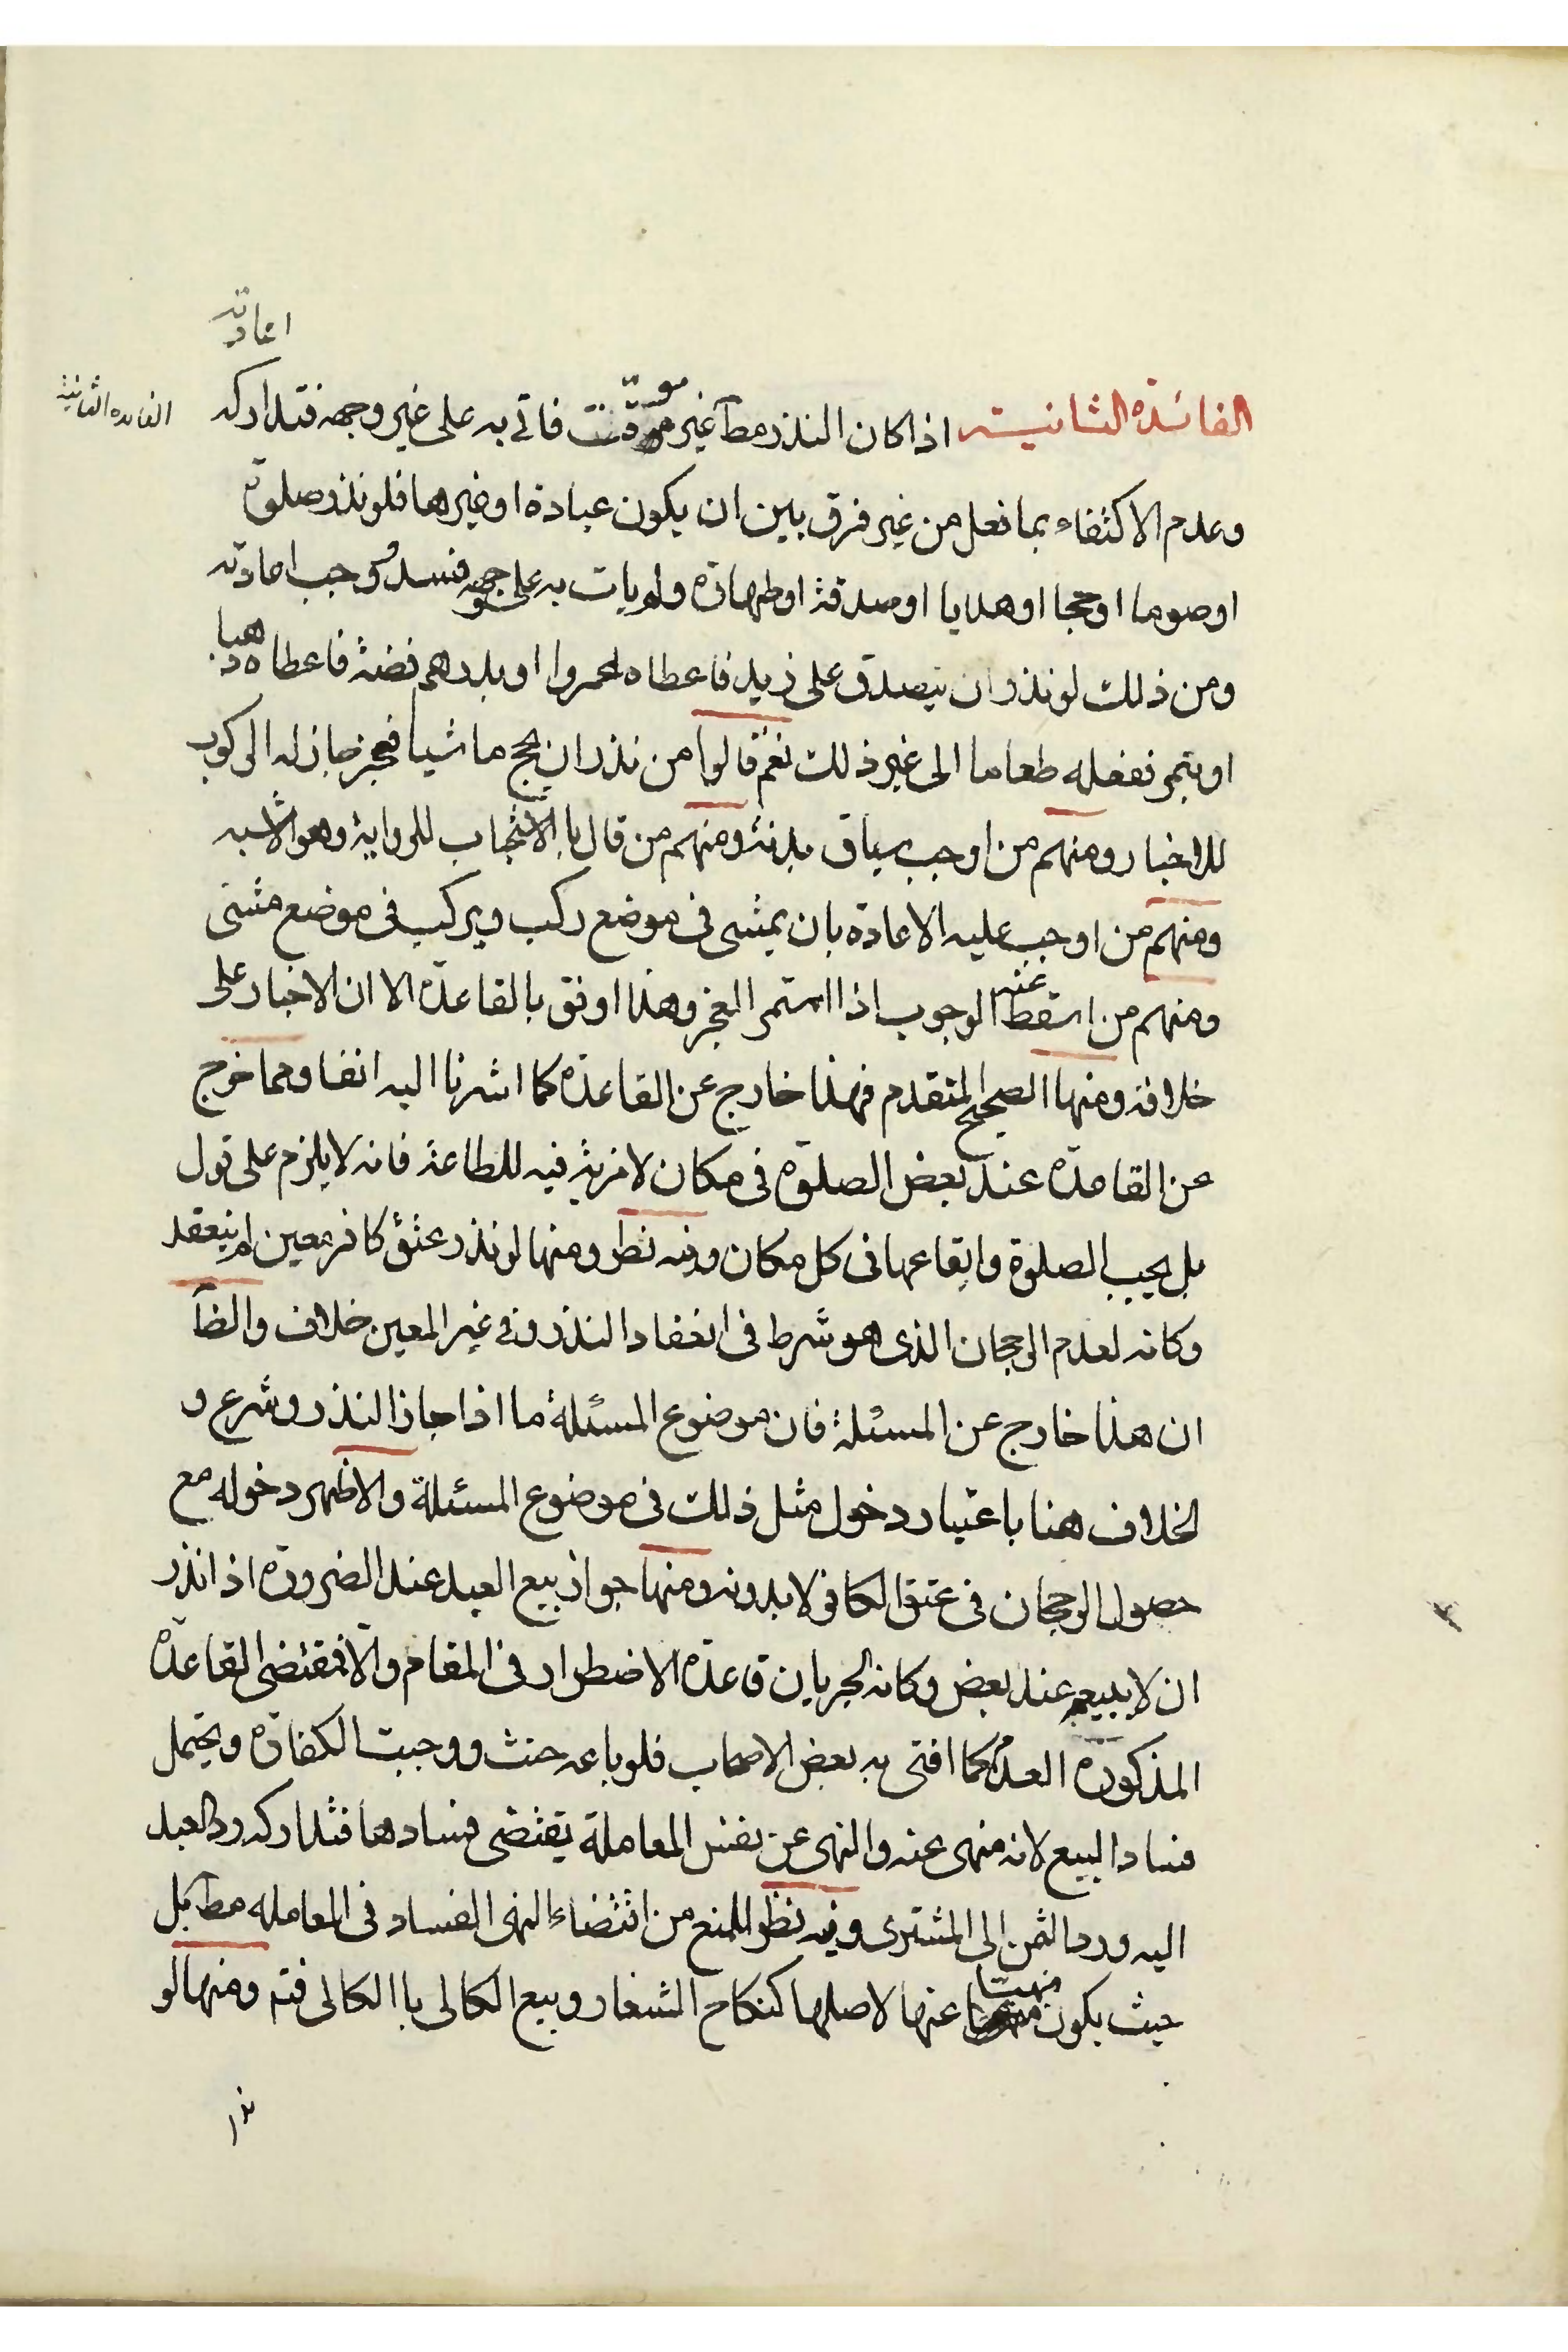 اعادته
الفائدة الثانية اذا كان النذر مطآ غير موقت فاتى به على غير وجهه فتداركه
الفائدة الثانية
وعدم الاكتفاء بما فعل من غير فرق بين ان يكون عبادة او غيرها فلو نذر صلوة
او صوما او حجا او هدايا او صدقة او طهارة ولم يات به على وجهه فسد ووجب اعادته
ومن ذلك لو نذر ان يتصدق على زيد فاعطاه لعمروا او بدرهم فضة فاعطاه ذهبا
او بتمر نفعله طعاما الى غير ذلك نعم قالوا من نذر ان يحج ماشيا فعجز جاز له الركوب
للاخبار ومنهم من اوجب سياق بدنة ومنهم من قال بالاستحباب للرواية وهو الاشبه
ومنهم من اوجب عليه الاعادة بان يمشى فى موضع ركب ويركب فى موضع مشى
ومنهم من اسقط عنه الوجوب اذا استمر العجز وهذا اوفق بالقاعدة الا ان الاخبار على
خلافه ومنها الصحيح المتقدم فهذا خارج عن القاعدة كما اشرنا اليه انفا ومما خرج
عن القاعدة عند بعض الصلوة فى مكان لا مزية فيه للطاعة فانه لا يلزم على قول
بل يجب الصلوة وايقاعها فى كل مكان وفيه نظر ومنها لو نذر عتق كافر معين لم ينعقد
وكانه لعدم الرجحان الذى هو شرط فى انعقاد النذر وفى غير المعين خلاف والظآ
ان هذا خارج عن المسئلة فان موضوع المسئلة ما اذا جاز النذر وشرع و
الخلاف هنا باعتبار دخول مثل ذلك فى موضوع المسئلة والاظهر دخوله مع
حصول الرجحان فى عتق الكافر لا بدونه ومنها جواز بيع العبد عند الضرورة اذا نذر
ان لا يبيعه عند بعض وكانه لجريان قاعدة الاضطرار فى المقام والا فمقتضى القاعدة
المذكورة العدم كما افتى به بعض الاصحاب فلو باعه حنث ووجبت الكفارة ويحتمل
فساد البيع لانه منهى عنه والنهى عن نفس المعاملة يقتضى فسادها فتداركه رد العبد
اليه ورد الثمن الى المشترى وفيه نظر للمنع من اقتضاء النهى الفساد فى المعامله مطآ بل
حيث يكون منهيا عنها لاصلها كنكاح الشغار وبيع الكالى باالكالى فتم ومنها لو
نذر